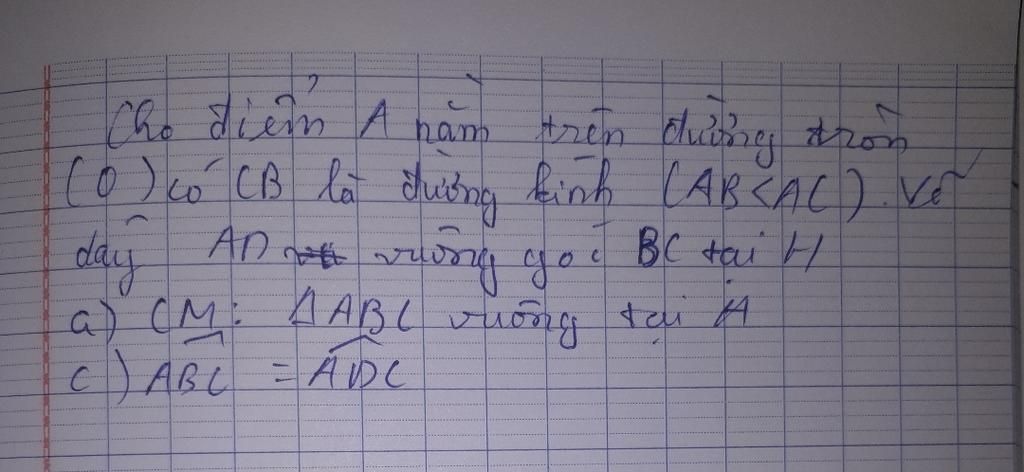 Cho điểm A nằm trên đường tròn
(O) có CB là đường kính (AB<AC). Vẽ
dây AD vuông góc BC tại H
a) CM: ΔABC vuông tại A
c) \widehat{ABC} = \widehat{ADC}